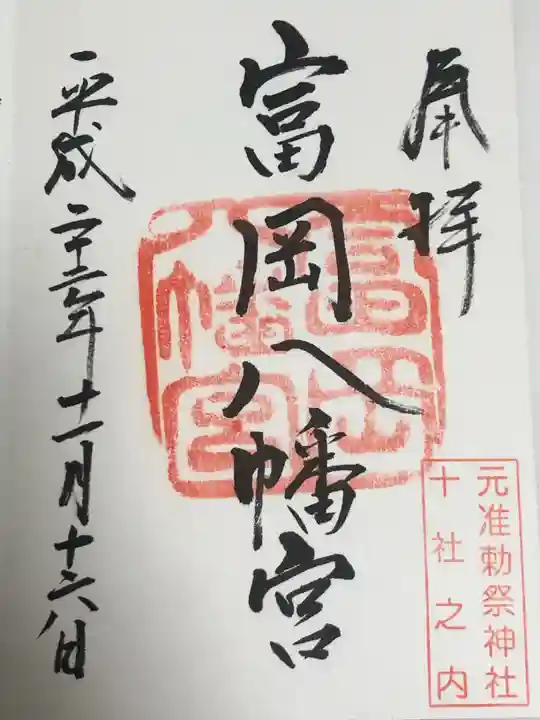 奉拝
富岡八幡宮
富岡八幡宮
平成二十二年十一月十六日
元准勅祭神社
十社之内